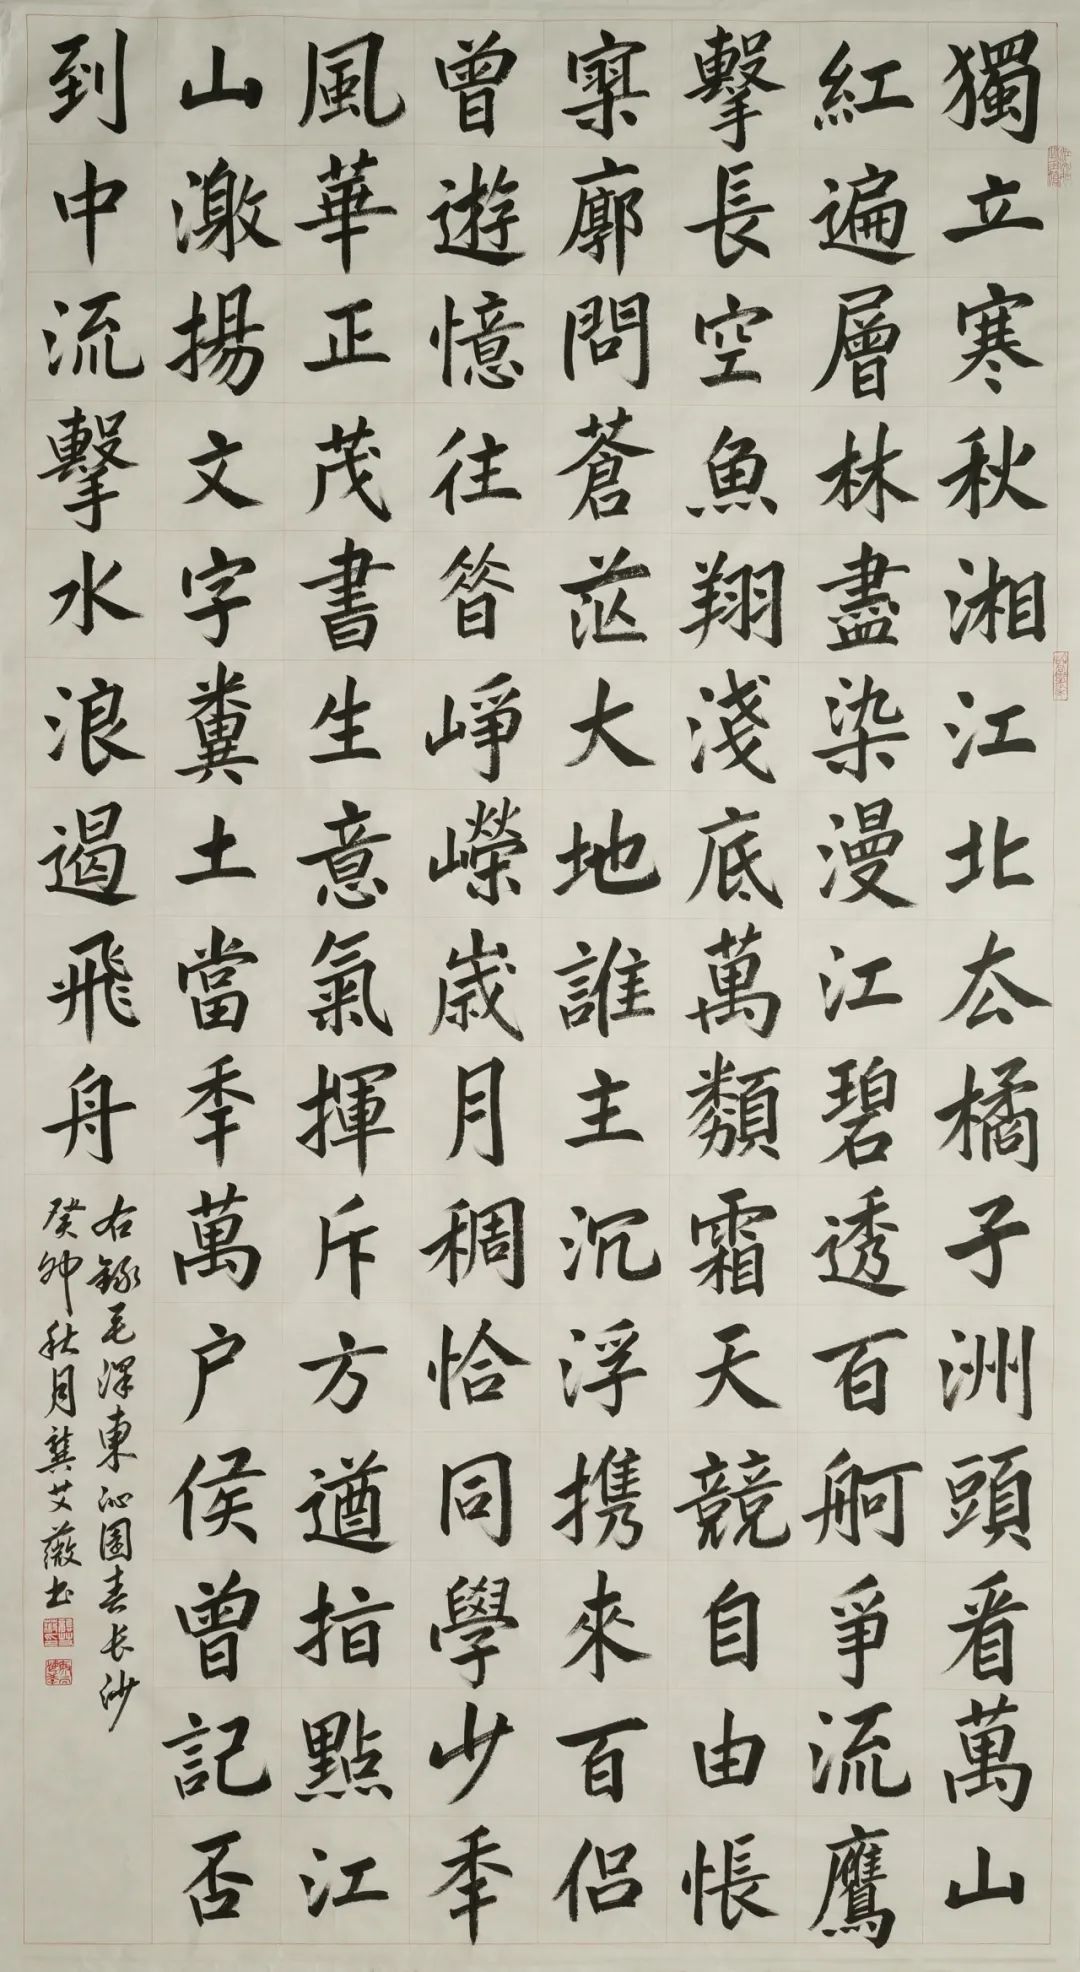 獨立寒秋湘江北厺橘子洲頭看萬山
紅遍層林盡染漫江碧透百舸爭流鷹
擊長空魚翔淺底萬類霜天競自由悵
寥廓問蒼茫大地誰主沉浮携來百侣
曾遊憶往昔崢嶸歲月稠恰同學少秊
風華正茂書生意氣揮斥方遒指點江
山激揚文字糞土當秊萬户侯曾記否
到中流擊水浪遏飛舟
右錄毛澤東沁園春长沙
癸卯秋月龔艾薇书